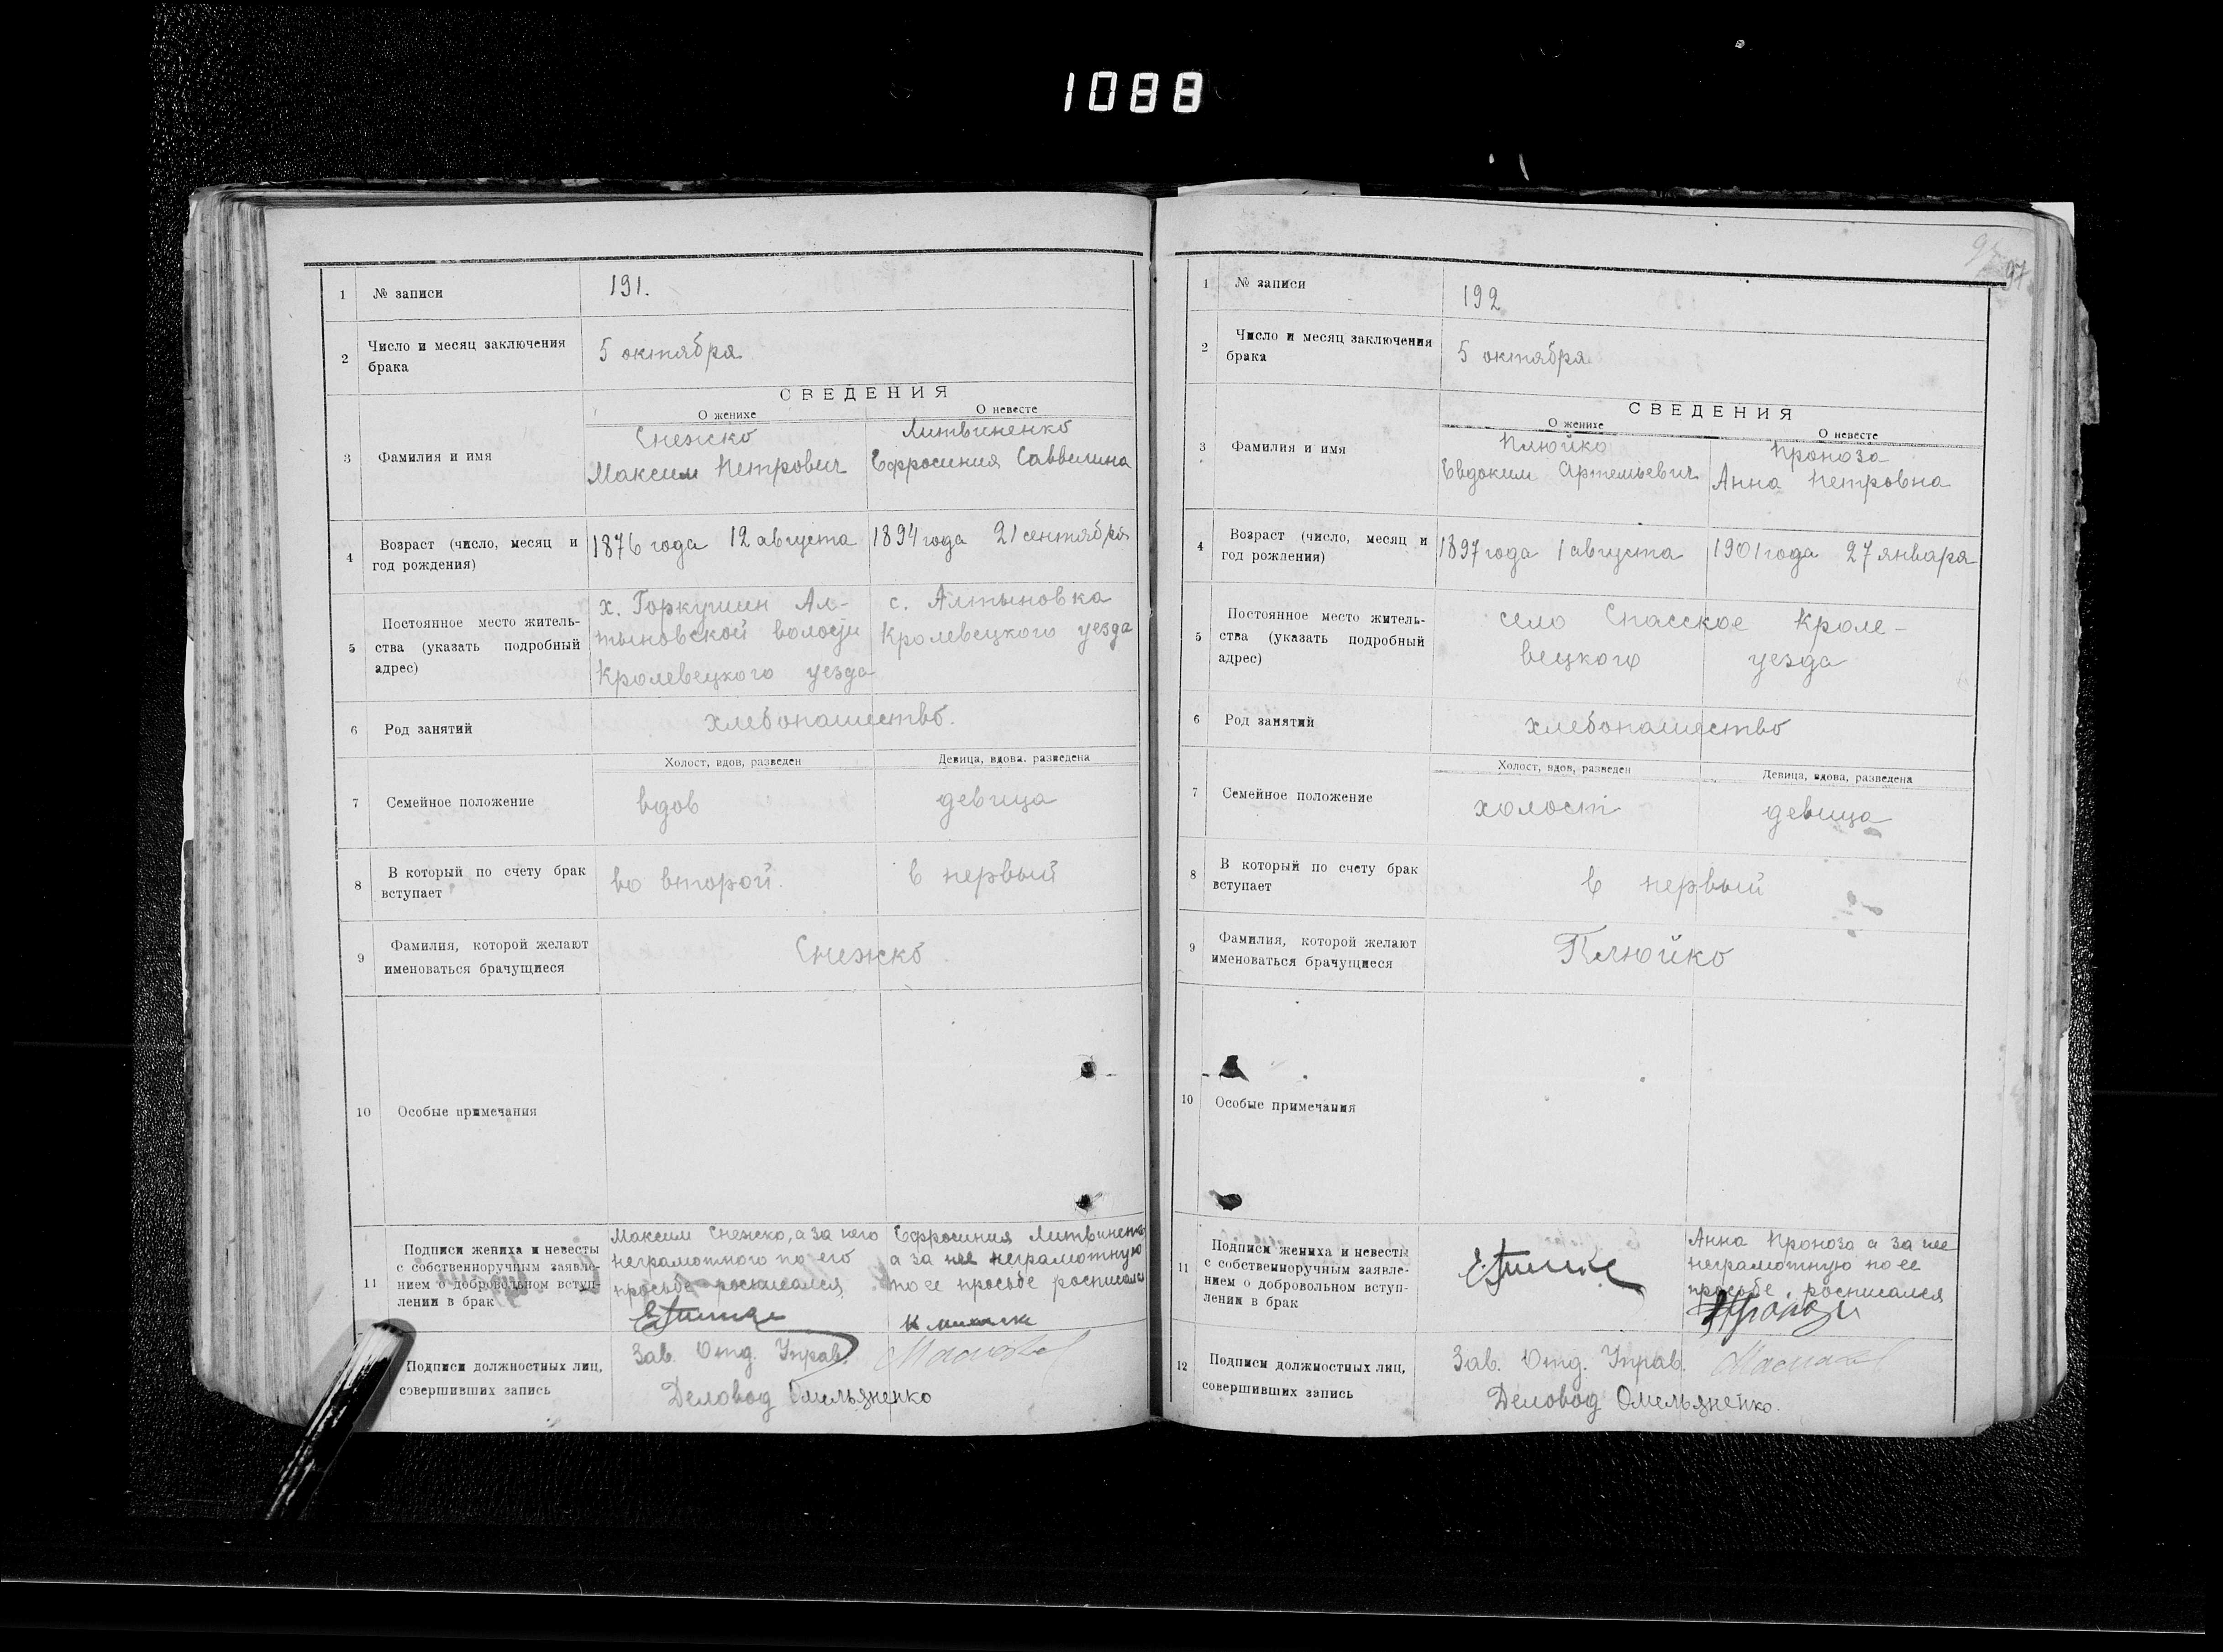 1088
97
1 № записи 191.
2 Число и месяц заключения
брака
5 октября
СВЕДЕНИЯ
О женихе О невесте
3 Фамилия и имя
Снежко Литвиненко
Максим Петрович Ефросиния Саввишна
4 Возраст (число, месяц и
год рождения)
1876 года 12 августа 1894 года 21 сентября
5 Постоянное место житель-
ства (указать подробный
адрес)
х. Горкушин Ал-
тыновской волости
Кролевецкого уезда
с. Алтыновка
Кролевецкого уезда
6 Род занятий хлебопашество.
Холост, вдов, разведен Девица, вдова, разведена
7 Семейное положение вдов девица
8 В который по счету брак
вступает
во второй. в первый
9 Фамилия, которой желают
именоваться брачущиеся
Снежко
10 Особые примечания
11 Подписи жениха и невесты
с собственноручным заявле-
нием о добровольном вступ-
лении в брак
Максим Снежко, а за него
неграмотного по его
просьбе росписался
Ефросиния Литвиненко
а за нее неграмотную
по ее просьбе росписался
Подписи должностных лиц,
совершивших запись
Зав. Отд. Управ.
Деловод Омельяненко
1 № записи 192
2 Число и месяц заключения
брака
5 октября
СВЕДЕНИЯ
О женихе О невесте
3 Фамилия и имя
Плюйко Проноза
Евдоким Артемьевич Анна Петровна
4 Возраст (число, месяц и
год рождения)
1897 года 1 августа 1901 года 27 января
5 Постоянное место житель-
ства (указать подробный
адрес)
село Спасское Кроле-
вецкого уезда
6 Род занятий хлебопашество
Холост, вдов, разведен Девица, вдова, разведена
7 Семейное положение холост девица
8 В который по счету брак
вступает
в первый
9 Фамилия, которой желают
именоваться брачущиеся
Плюйко
10 Особые примечания
11 Подписи жениха и невесты
с собственноручным заявле-
нием о добровольном вступ-
лении в брак
Анна Проноза а за нее
неграмотную по ее
просьбе росписался
12 Подписи должностных лиц,
совершивших запись
Зав. Отд. Управ.
Деловод Омельяненко.